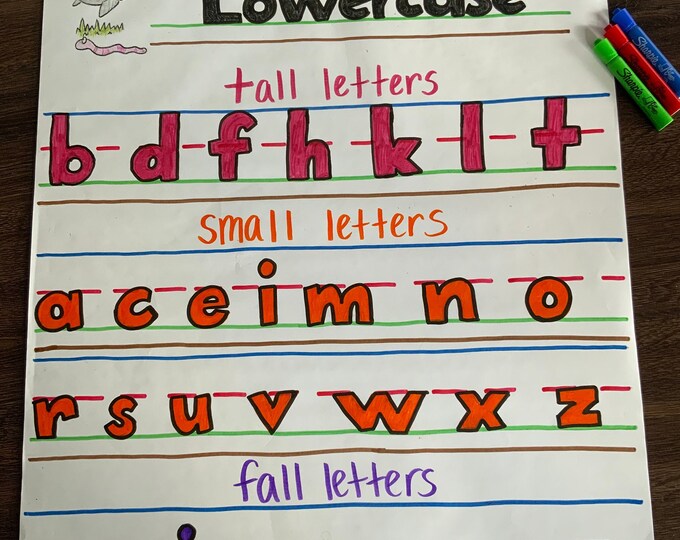 Lowercase
tall letters
b d f h k l t
small letters
a c e i m n o
r s u v w x z
fall letters
Sharpie
Sharpie